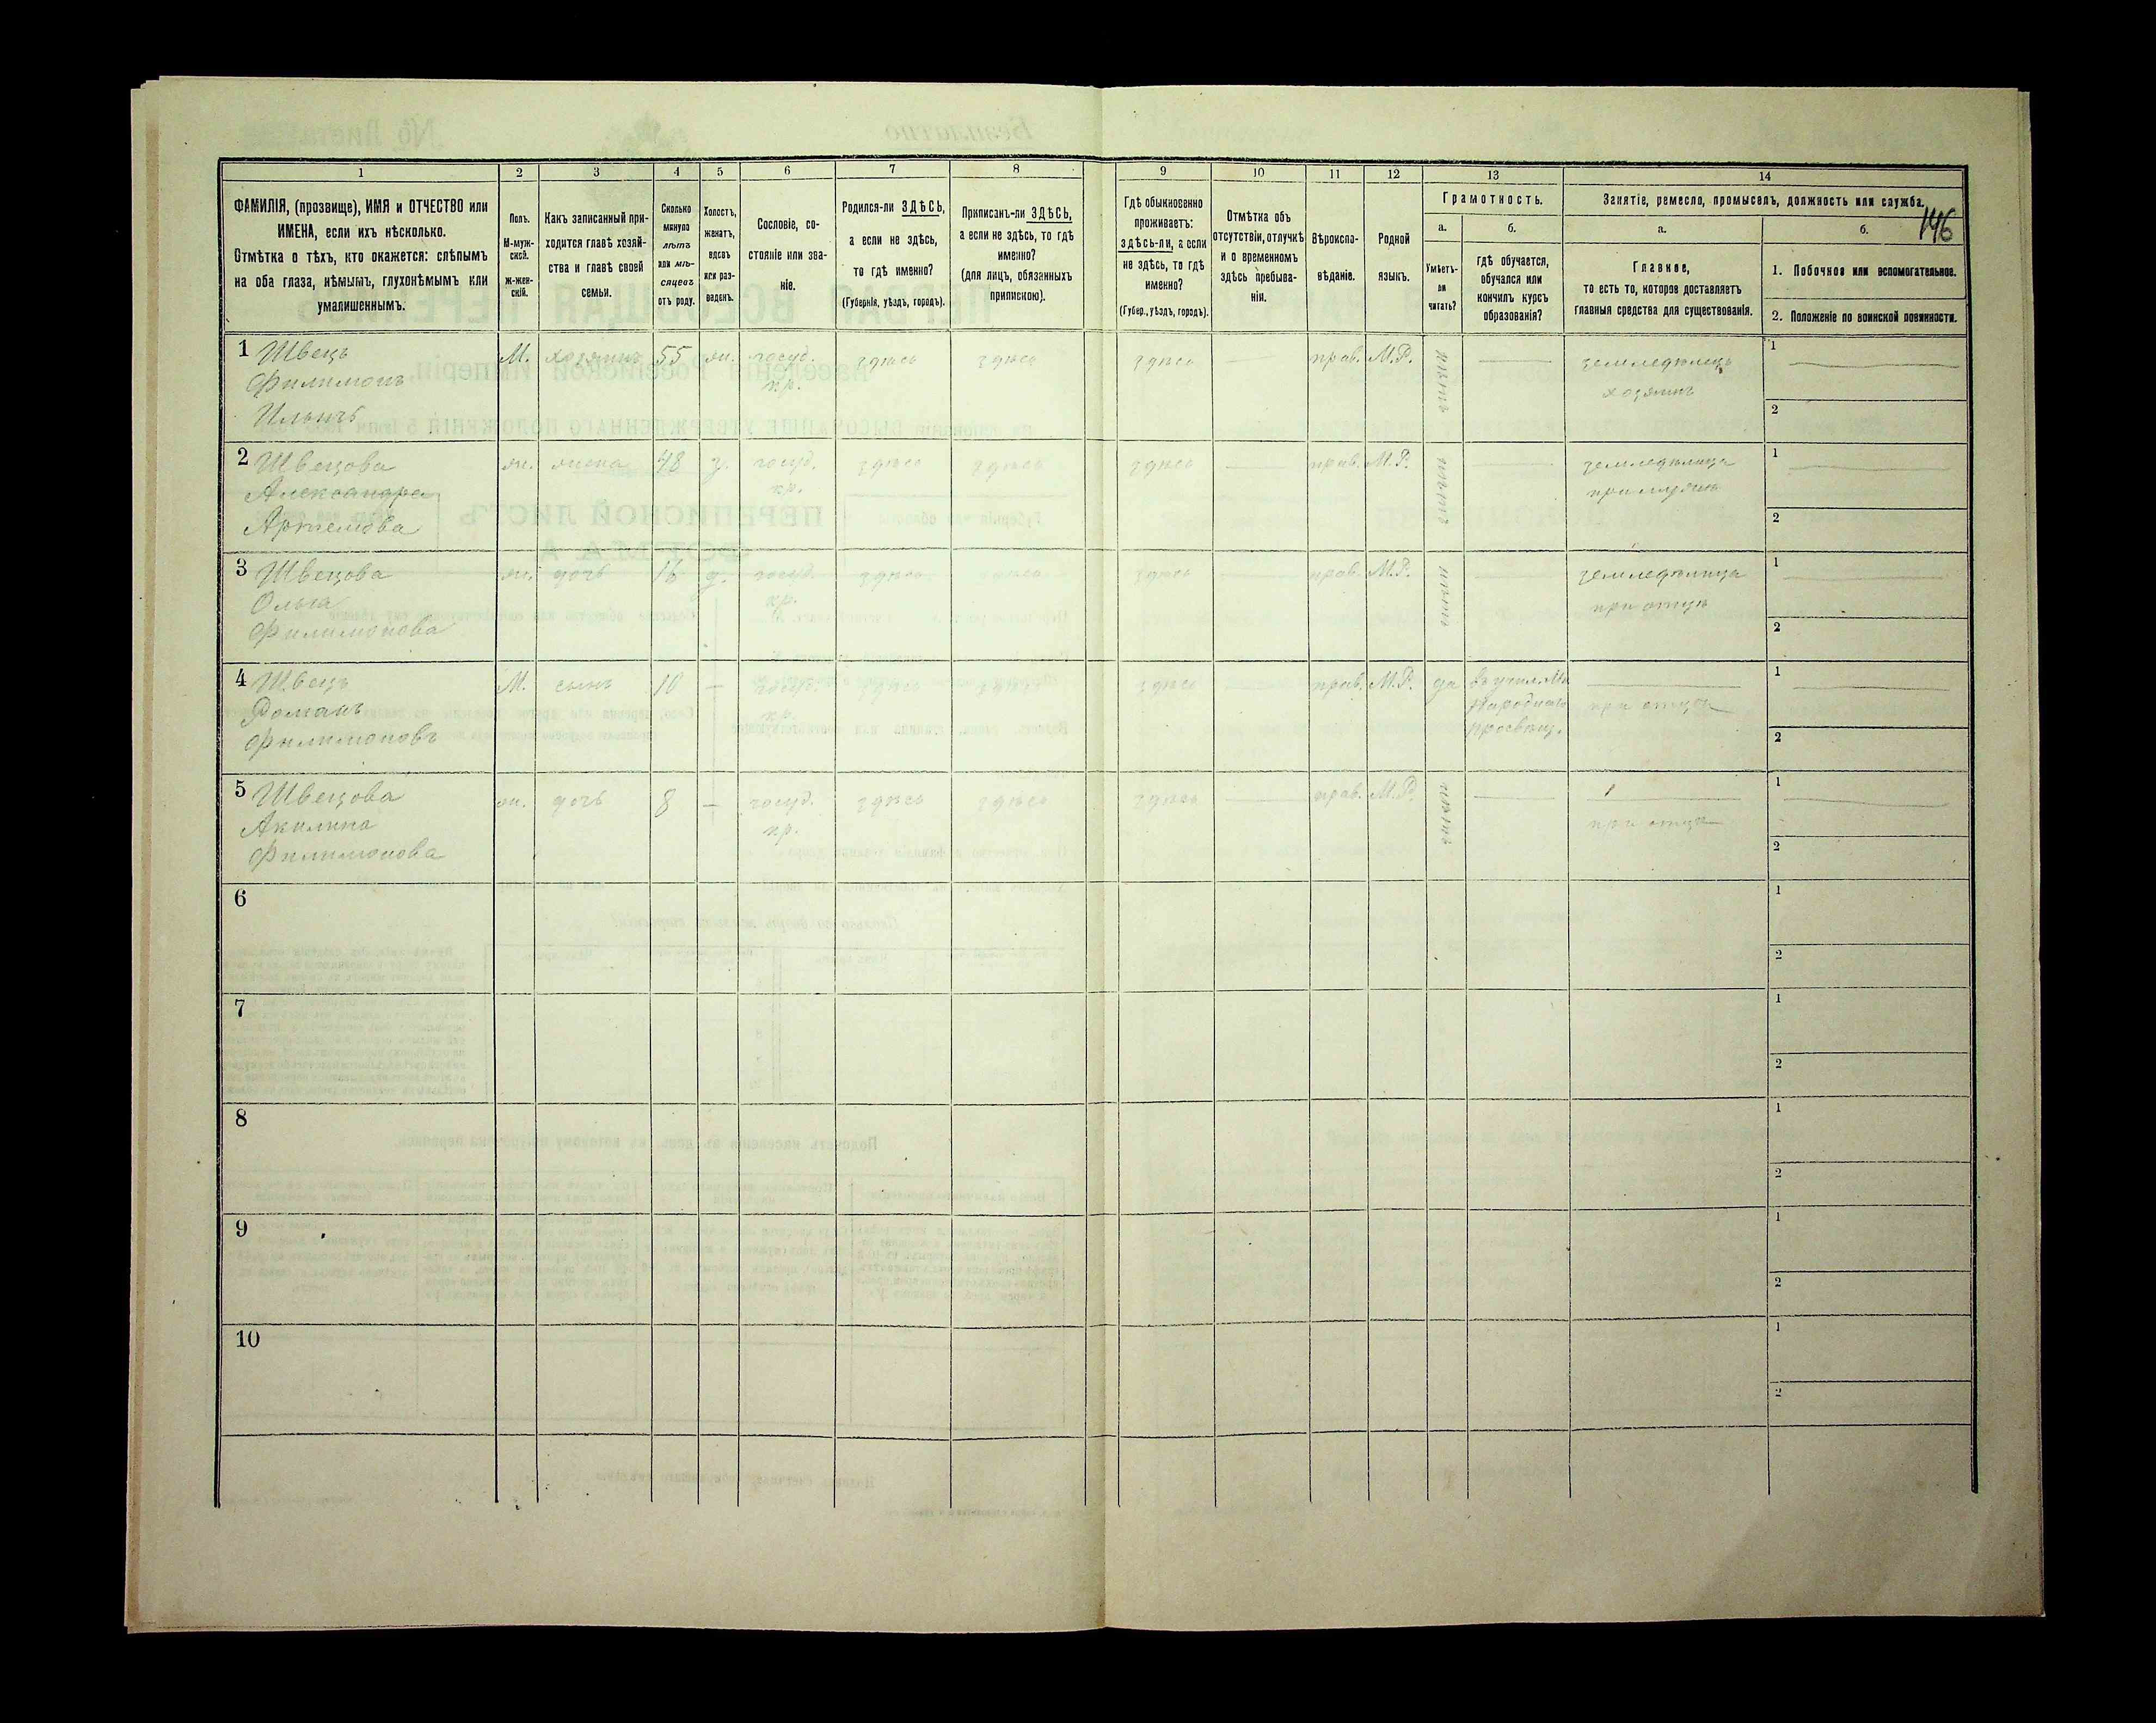 146
1
2
3
4
5
6
7
8
9
10
11
12
13
14
ФАМИЛІЯ, (прозвище), ИМЯ и ОТЧЕСТВО или
ИМЕНА, если ихъ нѣсколько.
Отмѣтка о тѣхъ, кто окажется: слѣпымъ
на оба глаза, нѣмымъ, глухонѣмымъ или
умалишеннымъ.
Полъ.
М-муж-
ской.
ж-жен-
скій.
Какъ записанный при-
ходится главѣ хозяй-
ства и главѣ своей
семьи.
Сколько
минуло
лѣтъ
или мѣ-
сяцевъ
отъ роду.
Холостъ,
женатъ,
вдовъ
или раз-
веденъ.
Сословіе, со-
стояніе или зва-
ніе.
Родился-ли ЗДѢСЬ,
а если не здѣсь,
то гдѣ именно?
(Губернія, уѣздъ, городъ).
Приписанъ-ли ЗДѢСЬ,
а если не здѣсь, то гдѣ
именно?
(для лицъ, обязанныхъ
припискою).
Гдѣ обыкновенно
проживаетъ:
здѣсь-ли, а если
не здѣсь, то гдѣ
именно?
(Губер., уѣздъ, городъ).
Отмѣтка объ
отсутствіи, отлучкѣ
и о временномъ
здѣсь пребыва-
ніи.
Вѣроиспо-
вѣданіе.
Родной
языкъ.
Грамотность.
а.
Умѣетъ-
ли
читать?
б.
гдѣ обучается,
обучался или
кончилъ курсъ
образованія?
Занятіе, ремесло, промыселъ, должность или служба.
а.
Главное,
то есть то, которое доставляетъ
главныя средства для существованія.
б.
1. Побочное или вспомогательное.
2. Положеніе по воинской повинности.
1 Швецъ М. хозяинъ 55 ж. госуд. здѣсь здѣсь здѣсь — прав. М.Р. нѣтъ — земледѣлецъ 1
Филимонъ кр. хозяинъ
Ильичъ 2
2 Швецова ж. жена 48 з. госуд. здѣсь здѣсь здѣсь — прав. М.Р. нѣтъ — земледѣлица 1
Александра кр. при мужѣ
Артемова 2
3 Швецова ж. дочь 16 д. госуд. здѣсь здѣсь здѣсь — прав. М.Р. нѣтъ — земледѣлица 1
Ольга кр. при отцѣ
Филимонова 2
4 Швецъ М. сынъ 10 — госуд. здѣсь здѣсь здѣсь — прав. М.Р. да въ учил. Ми — 1
Романъ кр. народнаго при отцѣ
Филимоновъ просвѣщ. 2
5 Швецова ж. дочь 8 — госуд. здѣсь здѣсь здѣсь — прав. М.Р. нѣтъ — — 1
Акилина кр. при отцѣ
Филимонова 2
6 1
2
7 1
2
8 1
2
9 1
2
10 1
2